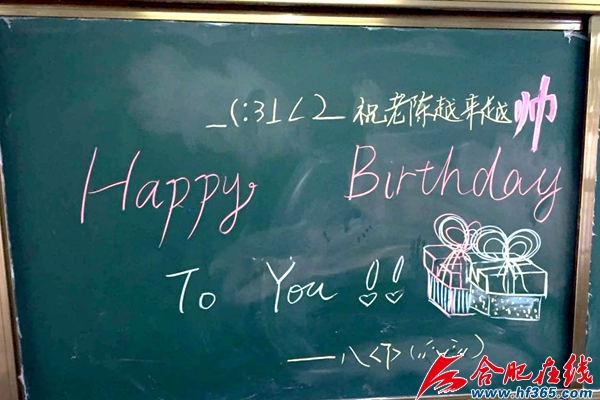 _(:3」∠)_ 祝老陈越来越帅
Happy Birthday
To You !!
——八<下>
合肥在线
www.hf365.com